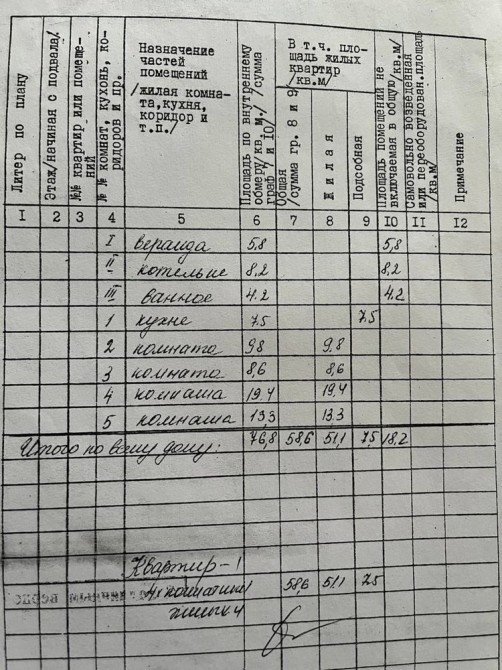 Литер по плану
Этаж/начиная с подвала/
№№ квартир или помеще-
ний
№ № комнат, кухонь, ко-
ридоров и пр.
Назначение
частей
помещений
/жилая комна-
та,кухня,
коридор и
т.п./
Площадь по внутреннему
обмеру/кв.м./ /сумма
граф 7 и 10/
В т.ч. пло-
щадь жилых
квартир
/кв.м/
Общая
/сумма гр. 8 и 9/
Жилая
Подсобная
Площадь помещений не
включаемая в общую/кв.м/
Самовольно возведенная
или переоборудован.площадь
/кв.м/
Примечание
I 2 3 4 5 6 7 8 9 10 II 12
I веранда 5,8 5,8
II котельне 8,2 8,2
III ванное 4.2 4.2
1 кухне 7.5 7.5
2 комната 9.8 9.8
3 комната 8,6 8,6
4 комната 19.4 19.4
5 комната 13,3 13.3
Итого по всему дому: 76,8 58,6 51,1 7,5 18,2
Квартир-1
58,6 51.1 7.5